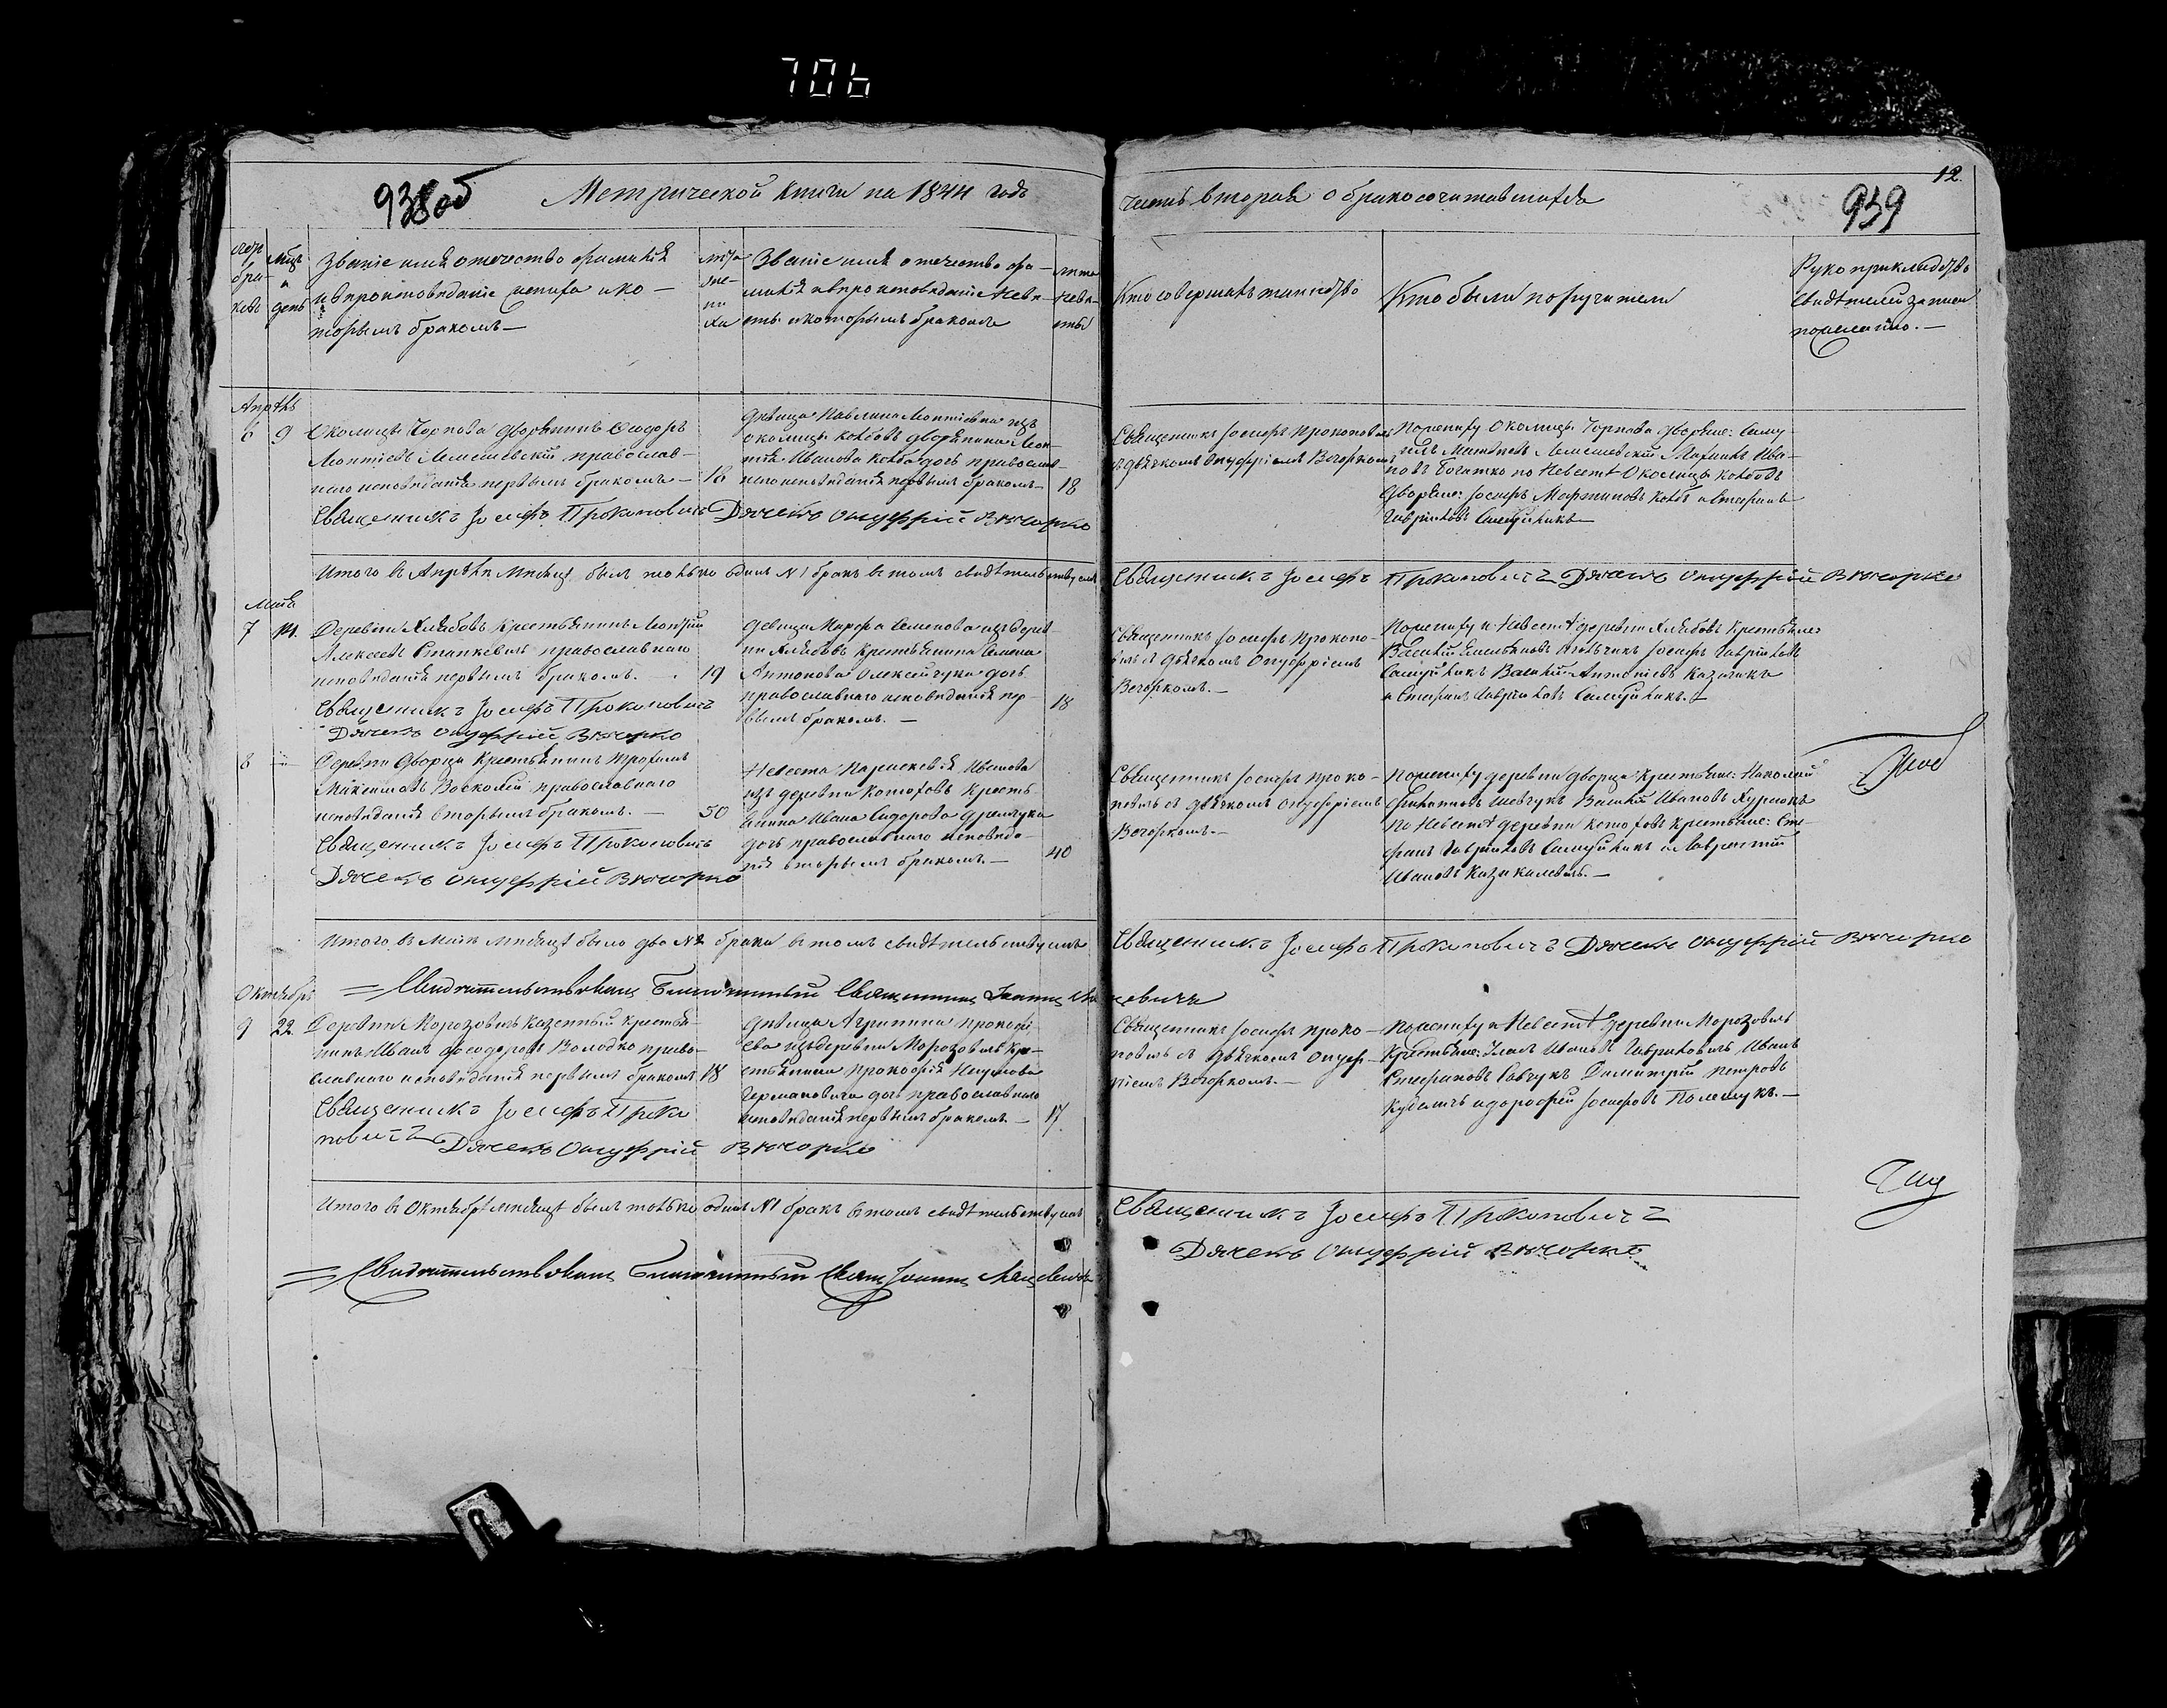 706
938об
Метрической книги на 1844 годъ
часть вторая о бракосочитавшихся
12.
939
бра-
ковъ
Мцъ
и
день
Званіе имя отечество фамилія
и вѣроисповѣданіе жениха и ко-
торымъ бракомъ —
лѣта
же-
ни
ха
Званіе имя отечество фа-
милія и вѣроисповѣданіе невѣ-
сты и которымъ бракомъ
лѣта
невѣ-
сты
Кто совершалъ таинство
Кто были поручители
Рукоприкладство
свидѣтелей записи
по желанію. —
Апрѣль
6 9
Околицы Чернова дворянинъ Ѳеодоръ
Леонтіевъ Лемешевскій православ-
наго исповѣданія первымъ бракомъ — 18
Священникъ Іосифъ Прокоповичъ Дячекъ Онуфрій Вечорко
дѣвица Павлина Леонтіевна изъ
околицы Колбовъ дворянина Леон-
тія Иванова Колба дочь православ-
наго исповѣданія первымъ бракомъ — 18
Священникъ Іосифъ Прокоповичъ
съ дьячкомъ Онуфріемъ Вечоркомъ
По жениху Околицы Чернова дворяне: Саму-
илъ Матвѣевъ Лемешевскій Ива-
новъ Богатко по невестѣ Околицы Колбовъ
дворяне: Іосифъ Мартиновъ Колбъ и Стефанъ
Гавріиловъ
Итого въ Апрѣлѣ месяцѣ былъ только одинъ №1 бракъ въ томъ свидѣтельствуемъ
Священникъ Іосифъ Прокоповичъ Дячекъ Онуфрій Вечорко
Маія
7 14.
Деревни Хлябовъ Крестьянинъ Леонтій
Алексеевъ Станкевичъ православнаго
исповѣданія первымъ бракомъ. — 19
Священникъ Іосифъ Прокоповичъ
Дячекъ Онуфрій Вечорко
дѣвица Марфа Семенова изъ дерев-
ни Хлябовъ крестьянина Семена
Антонова Олексійчука дочь
православнаго исповѣданія пер-
вымъ бракомъ. — 18
Священникъ Іосифъ Прокопо-
вичъ съ дьячкомъ Онуфріемъ
Вечоркомъ. —
По жениху и Невестѣ деревни Хлябовъ Крестьяне:
Василій Емельяновъ Іосифъ Гавріиловъ
Василій Антоніевъ Казачикъ
и Стефанъ Гавріиловъ
8 —
Деревни Дворца Крестьянинъ Трофимъ
Максимовъ православнаго
исповѣданія вторымъ бракомъ. — 50
Священникъ Іосифъ Прокоповичъ
Дячекъ Онуфрій Вечорко
Невеста Параскевія Иванова
изъ деревни Котовъ Кресть-
янина Ивана Сидорова
дочь православнаго исповѣда-
нія вторымъ бракомъ. — 40
Священникъ Іосифъ Проко-
повичъ съ дьячкомъ Онуфріемъ
Вечоркомъ. —
По жениху деревни дворца Крестьяне: Николай
Шевчукъ Василій Ивановъ
По Невестѣ деревни Котовъ Крестьяне: Сте-
фанъ Гавріиловъ и Лаврентій
Ивановъ
Итого въ Маіи месяцѣ было два №2 брака въ томъ свидѣтельствуемъ
Священникъ Іосифъ Прокоповичъ Дячекъ Онуфрій Вечорко
= Свидѣтельствовалъ Благочинный Священникъ Іоаннъ
Октябрь
9 22
Деревни Морозовичъ Казенный Крестья-
нинъ Иванъ Ѳеодоровъ Володко право-
славнаго исповѣданія первымъ бракомъ 18
Священникъ Іосифъ Проко
повичъ Дячекъ Онуфрій Вечорко
дѣвица Агрипина Прокофі-
ева изъ деревни Морозовичъ Кре-
стьянина Прокофія Наумова
Германовича дочь православнаго
исповѣданія первымъ бракомъ. — 17.
Священникъ Іосифъ Проко-
повичъ съ дьячкомъ Онуф-
ріемъ Вечоркомъ. —
По жениху и Невестѣ деревни Морозовичъ
Крестьяне: Иванъ
Стефановъ Савчукъ Димитрій Петровъ
и Дорофей Іосифовъ Полещукъ. —
Итого въ Октябрѣ месяцѣ былъ только одинъ №1 бракъ въ томъ свидѣтельствуемъ
Священникъ Іосифъ Прокоповичъ
Дячекъ Онуфрій Вечорко
= Свидѣтельствовалъ Благочинный Свящ Іоаннъ